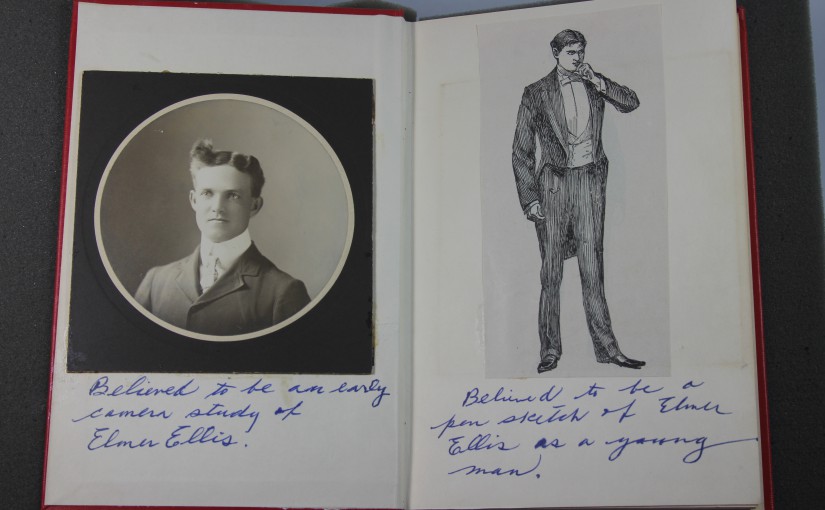 Believed to be an early
camera study of
Elmer Ellis.
Believed to be a
pen sketch of Elmer
Ellis as a young
man.